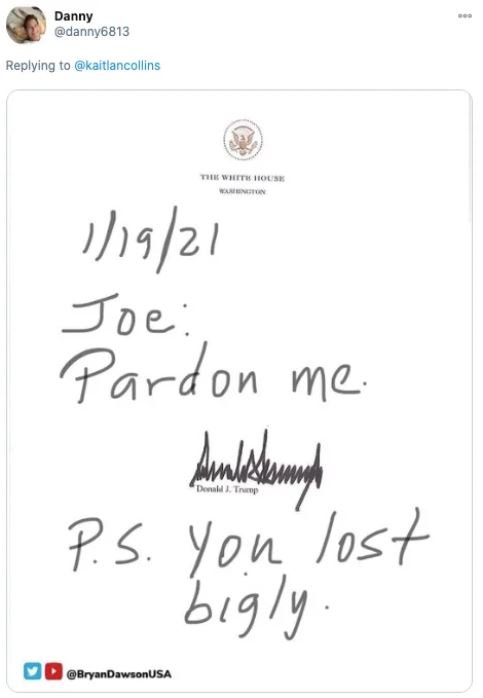 Danny
@danny6813
Replying to @kaitlancollins
THE WHITE HOUSE
WASHINGTON
1/19/21
Joe:
Pardon me.
Donald J. Trump
P.S. you lost
bigly.
@BryanDawsonUSA